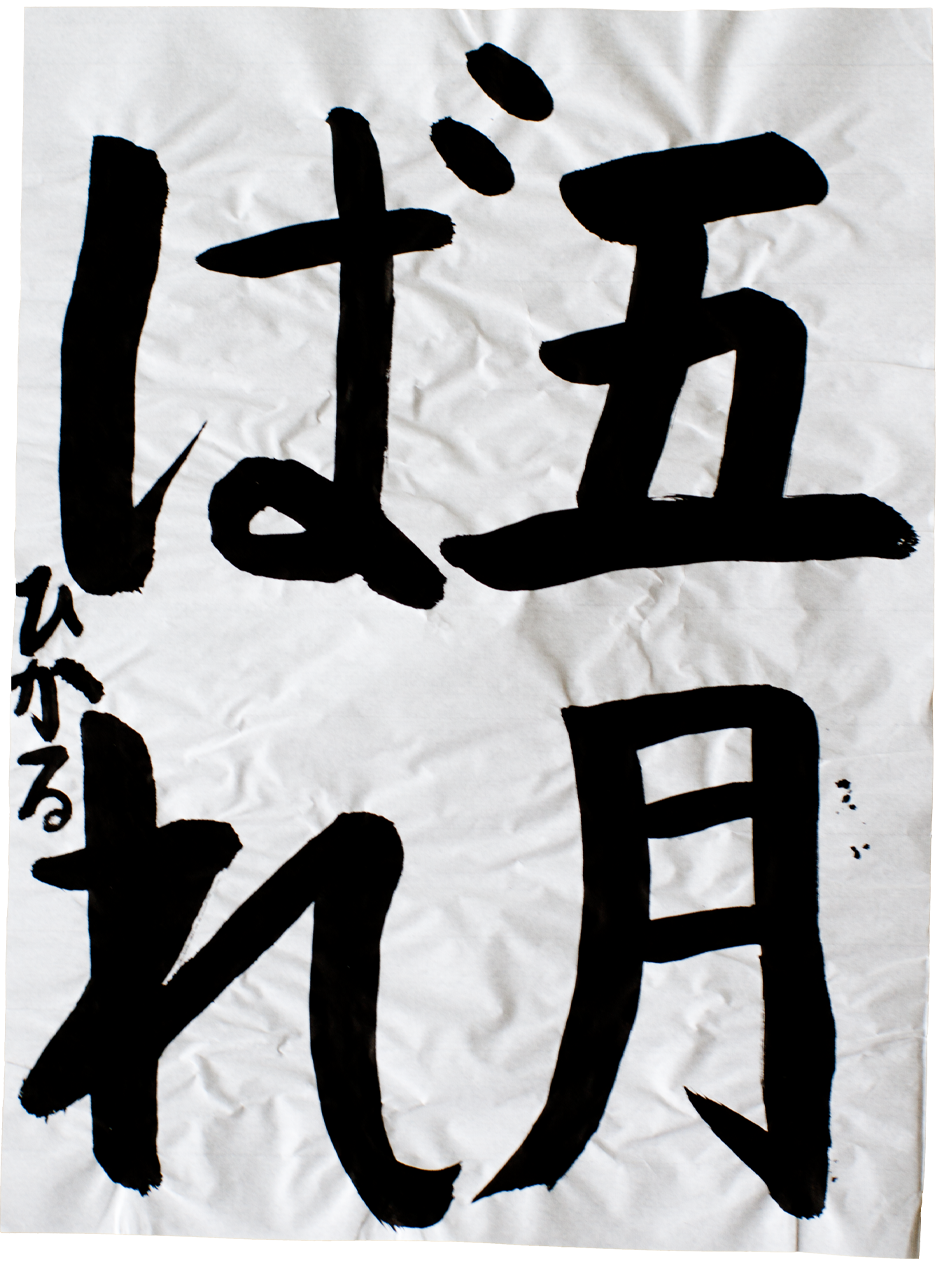 五月
ばれ
ひかる